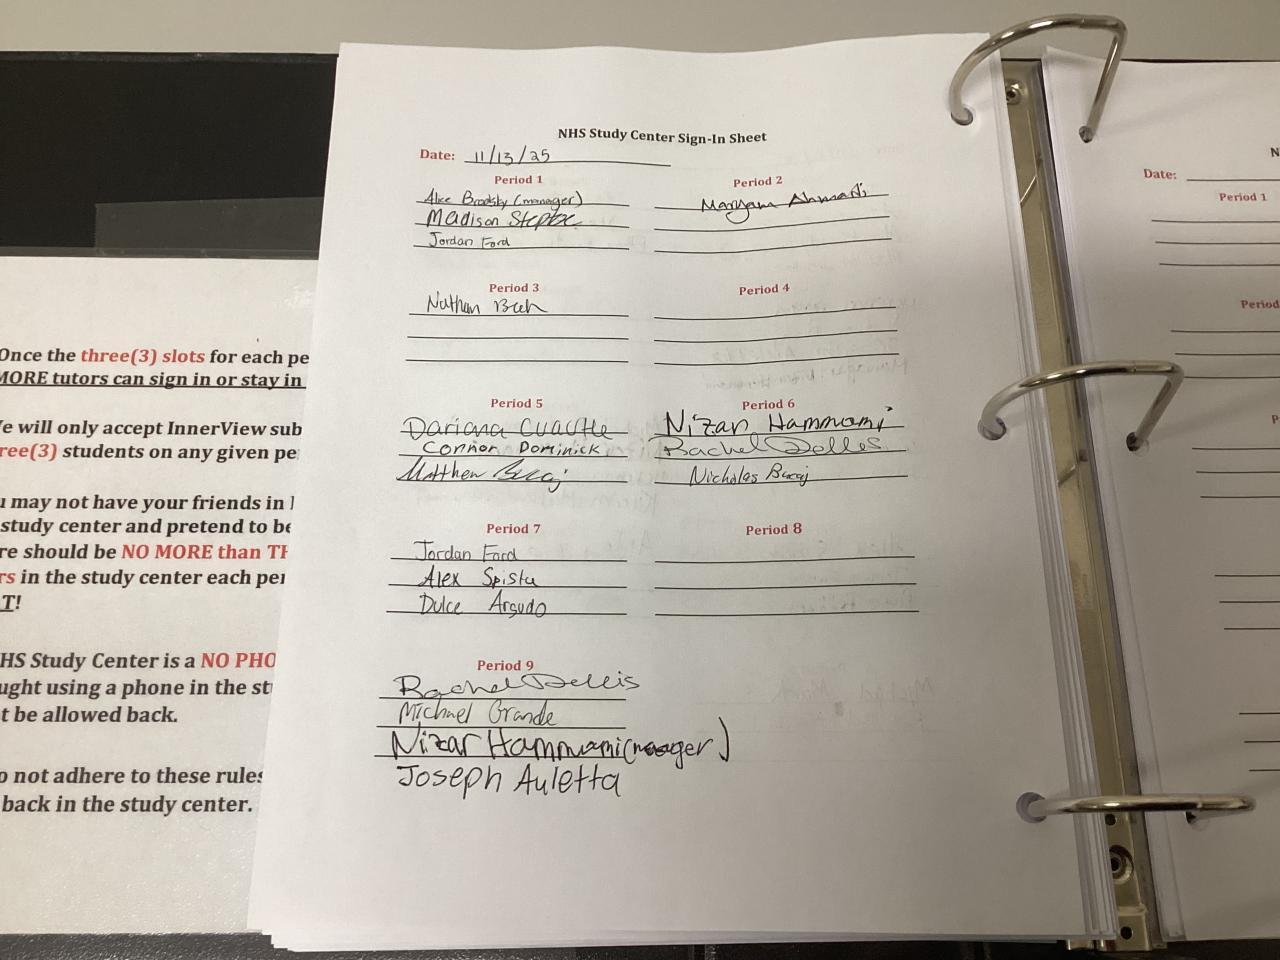 NHS Study Center Sign-In Sheet
Date: 11/13/25
Period 1
Alice Brodsky (manager)
Madison
Jordan Ford
Period 2
Maryam
Period 3
Nathan
Period 4
Period 5
Dariana Cuautle
Connor Dominick
Matthew Bucaj
Period 6
Nizar Hammami
Rachel
Nicholas Bucaj
Period 7
Jordan Ford
Alex
Dulce Argudo
Period 8
Period 9
Rachel
Michael Grande
Nizar Hammami (manager)
Joseph Auletta
Once the three(3) slots for each pe
MORE tutors can sign in or stay in
e will only accept InnerView sub
ree(3) students on any given pe
u may not have your friends in
study center and pretend to be
re should be NO MORE than TH
rs in the study center each per
T!
HS Study Center is a NO PHO
ught using a phone in the st
t be allowed back.
o not adhere to these rules
back in the study center.
N
Date:
Period 1
Period
P